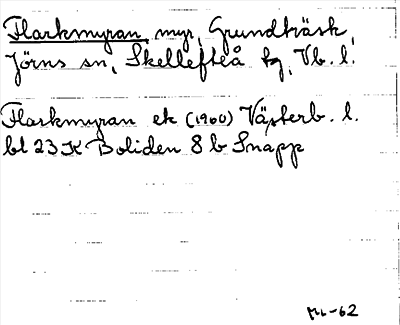 Flarkmyran myr, Grundträsk,
Jörns sn, Skellefteå tg, Vb. l.
Flarkmyran ek (1960) Västerb. l.
bl 23 K Boliden 8 b Snapp